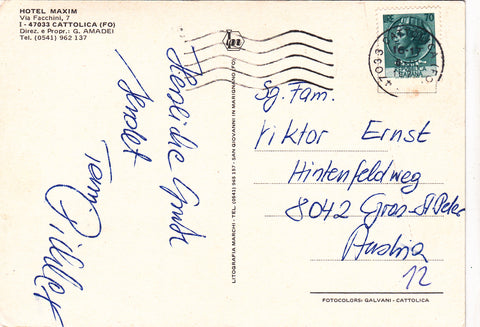 HOTEL MAXIM
Via Facchini, 7
I - 47033 CATTOLICA (FO)
Direz. e Propr.: G. AMADEI
Tel. (0541) 962 137
Herzliche Grüße
sendet
Fam.
LITOGRAFIA MARCHI - TEL. (0541) 945 137 - SAN GIOVANNI IN MARIGNANO (FO)
70
47033
Sg. Fam.
Viktor Ernst
Hintenfeldweg
8042 Graz-St. Peter
Austria
12
FOTOCOLORS: GALVANI - CATTOLICA